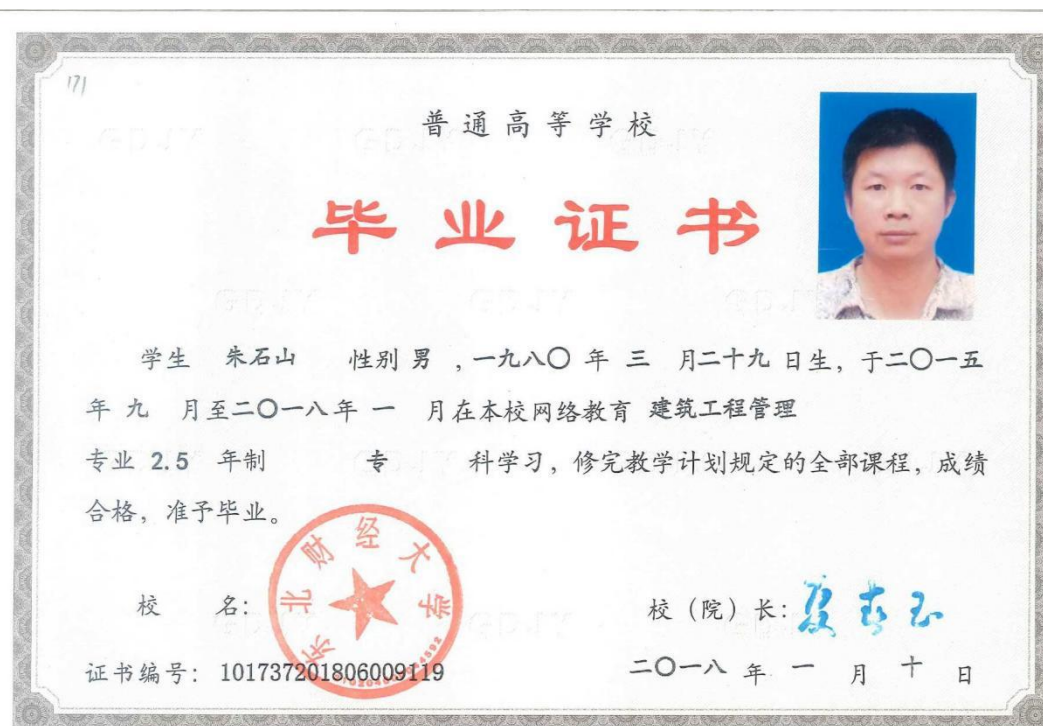 171
普通高等学校
毕业证书
学生 朱石山 性别 男 ,一九八〇 年 三 月二十九 日生，于二〇一五
年 九 月至二〇一八年 一 月在本校网络教育 建筑工程管理
专业 2.5 年制 专 科学习，修完教学计划规定的全部课程，成绩
合格，准予毕业。
东北财经大学
校 名： 校（院）长：夏春玉
证书编号： 101737201806009119 二〇一八 年 一 月 十 日